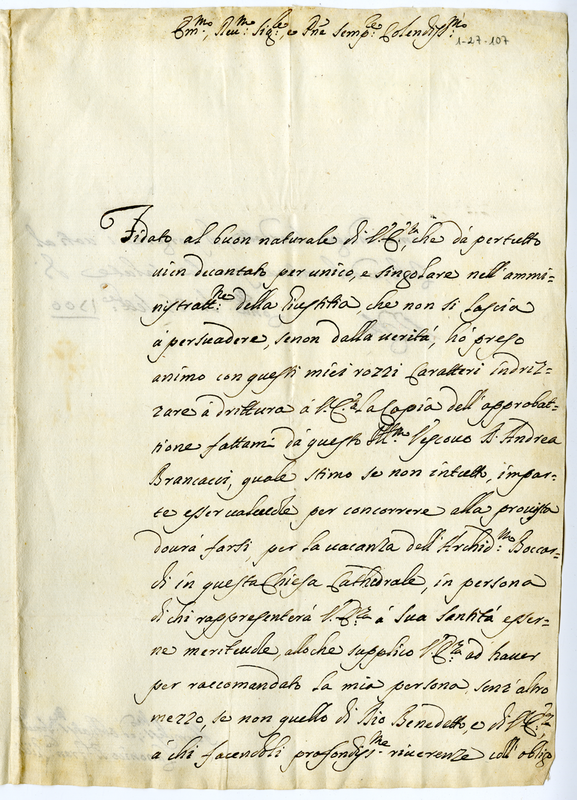 Em.mo, Rev.mo Sig.re, e P̃ne semp.re Colendiss.mo
1-27-107
Fidato al buon naturale di V.E.za, che dà pertutto
vien decantato per unico, e singolare nell'ammi=
nistratt.ne della Giustitia che non si lascia
à persuadere, senon dalla verità, hò preso
animo con questi miei rozzi Caratteri indriz=
zare à drittura à V.E.za la Copia dell'approbat=
tione fattami dà questo Ill.mo Vescovo D. Andrea
Brancacci, quale stimo se non intutto, impar=
te esser valevole per concorrere alla provista
dourà farsi, per la vacanza dell'Archid.no Boccar=
di in questa Chiesa Cathedrale, in persona
di chi rappresenterà V.E.za à Sua Santità esser=
ne meriteuole, alche supplico V.E.za ad hauer
per raccomandato la mia persona, senz'altro
mezzo, se non quello di Dio Benedetto, e di V.E.za,
à chi facendoli profondiss.me riuerenze coll'obligo